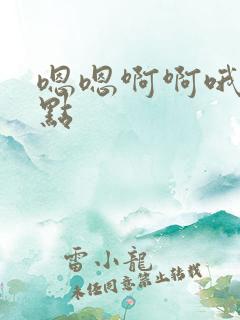 嗯嗯啊啊哦
點
雷小龍
未经同意禁止转载